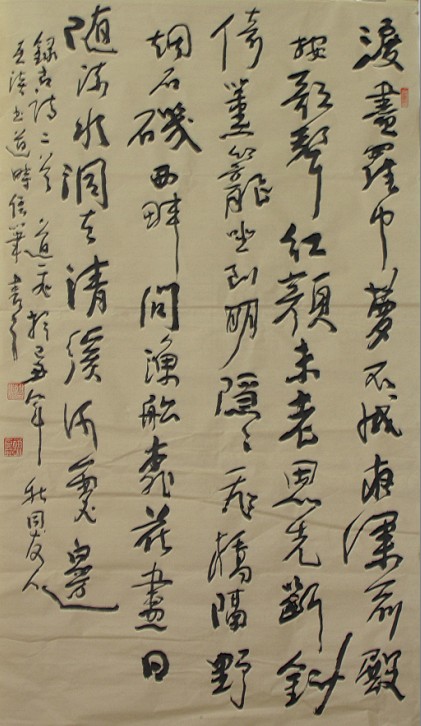 淚盡羅巾夢不成夜深前殿
按歌聲紅顏未老恩先斷斜
倚薰籠坐到明隱〻飛橋隔野
烟石磯西畔問漁船桃花盡日
随流水洞在清溪何處邊
錄古詩二首 於己丑年 秋 友人
時信筆書